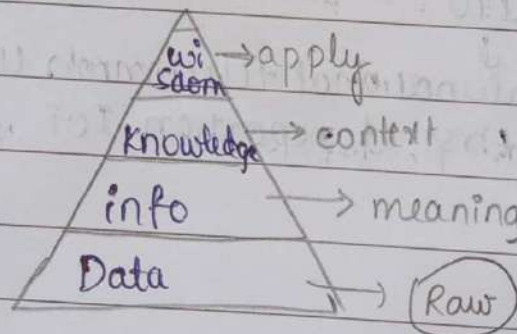 wi
sdom → apply
Knowledge → context
info → meaning
Data → Raw